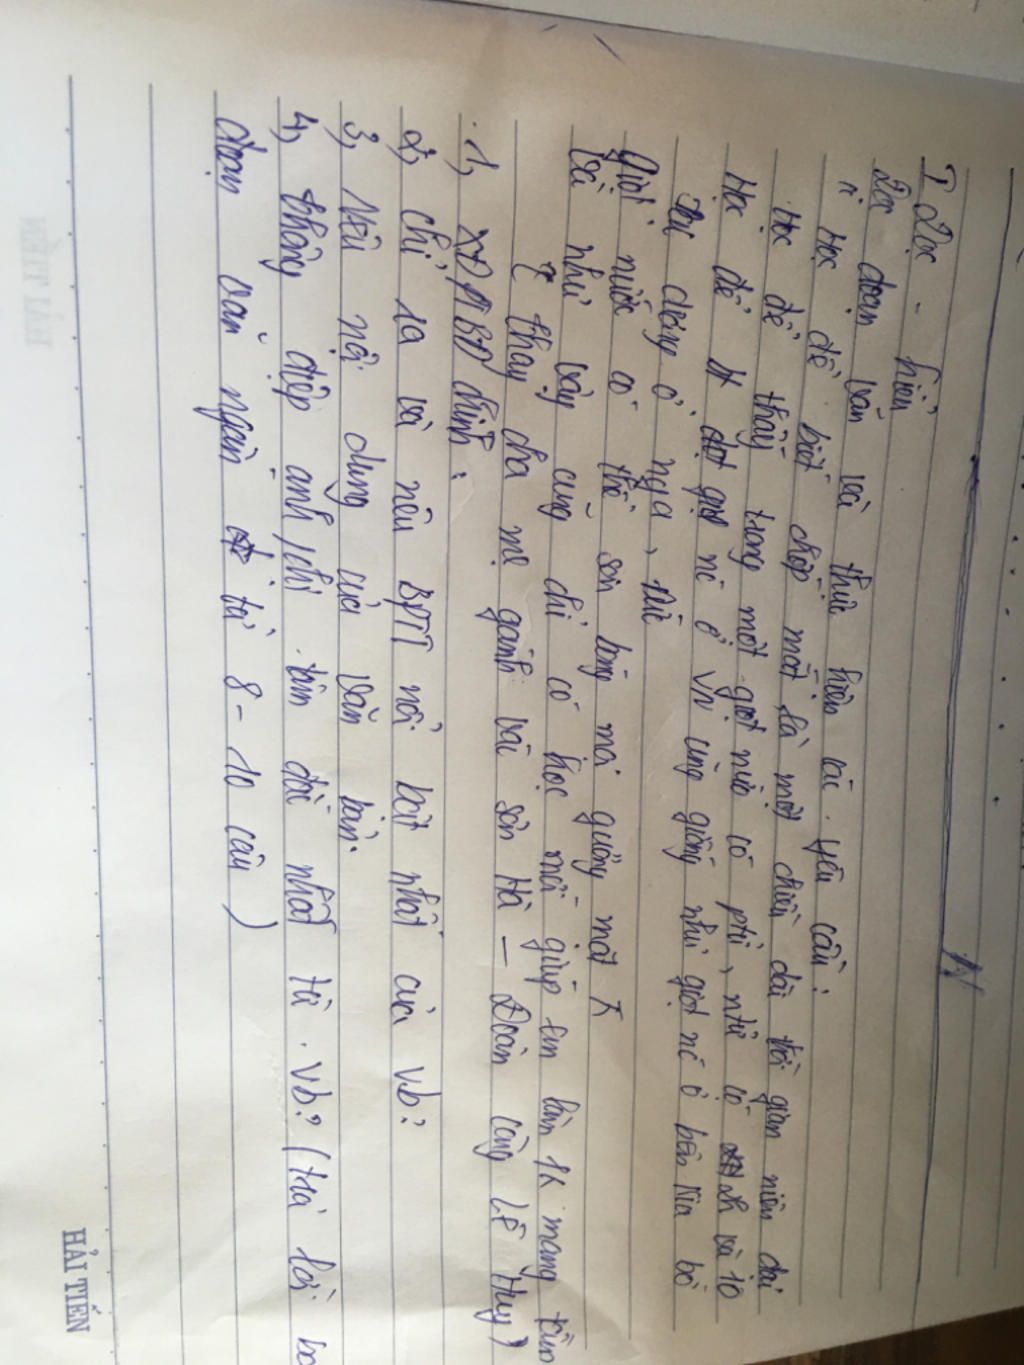 I. Đọc - hiểu
Đọc đoạn văn và thực hiện các yêu cầu:
" Học để biết chớp mắt là một chiều dài thời gian niên đại
Học để thấy trong một giọt nước có phù, như có và 10
Học để giọt nc ở VN cũng giống như giọt nc ở bên kia bờ
đại dương ở nga, đức
Giọt nước có thể soi bóng mọi guồng mặt
Và như vậy cũng chỉ có học mới giúp em làm mang
thay cha mẹ gánh vài sơn Hà - Đoàn công Lê Huy)
1, XĐ PTBĐ chính:
2, chỉ ra và nêu BPTT nổi bật nhất của vb?
3, Nêu nội dung của văn bản.
4, thông điệp anh/chị tâm đắc nhất từ vb? (trả lời
đoạn văn ngắn từ 8 - 10 câu)
HẢI TIẾN